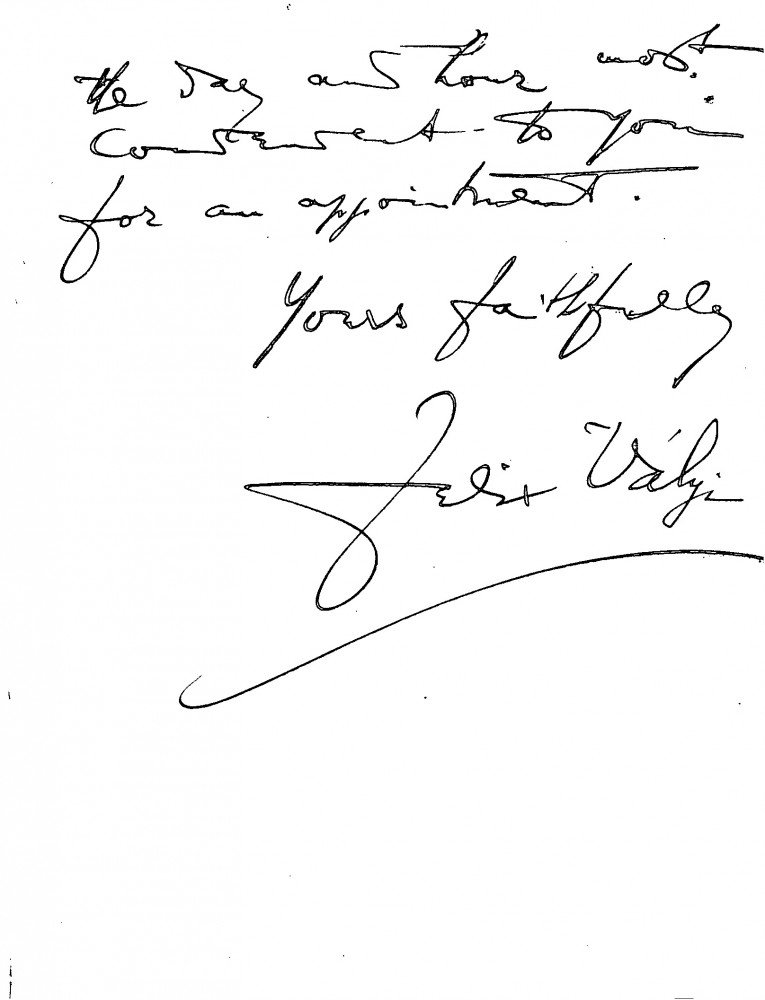 the day and hour most
convenient to you
for an appointment.
Yours faithfully
Felix Vályi